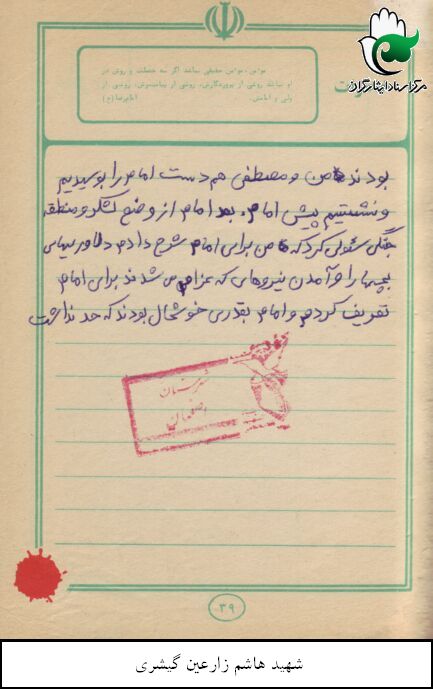 مرکز اسناد ایثارگران
مؤمن، مؤمن حقیقی نباشد اگر سه خصلت و روش در
او نباشد روشی از پروردگارش، روشی از پیامبرش، روشی از
ولی و امامش. امام رضا (ع)
بودند من و مصطفی هم دست امام را بوسیدیم
و نشستیم پیش امام. بعد امام از وضع لشکر و منطقه
جنگی سئوالی کرد که من برای امام شرح دادم دلاوریهای
بچه‌ها را و آمدن نیروهای که عزام می شدند برای امام
تعریف کردم و امام بقدری خوشحال بودند که حد نداشت
شهرستان
اصفهان
۳۹
شهید هاشم زارعین گیشری